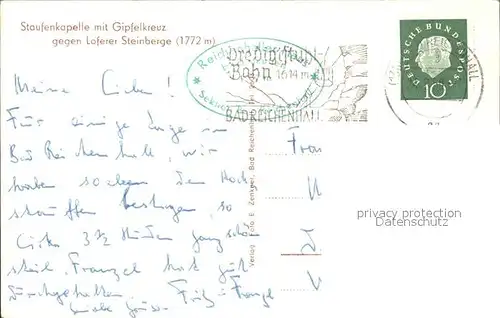 Staufenkapelle mit Gipfelkreuz
gegen Loferer Steinberge (1772 m)
Predigtstuhl
Bahn 1614 m
BAD REICHENHALL
DEUTSCHE BUNDESPOST
10
Meine Lieben!
Für einige Tage in
Bad Reichenhall, wir
haben soeben den Hoch
stauffen bestiegen, so
Cirka 3 1/2 Stunden ganz schön
steil, Franzel hat gut
durchgehalten. Fritz u Franzl
Frau
privacy protection
Datenschutz
Verlag Foto E. Zentner, Bad Reichenhall